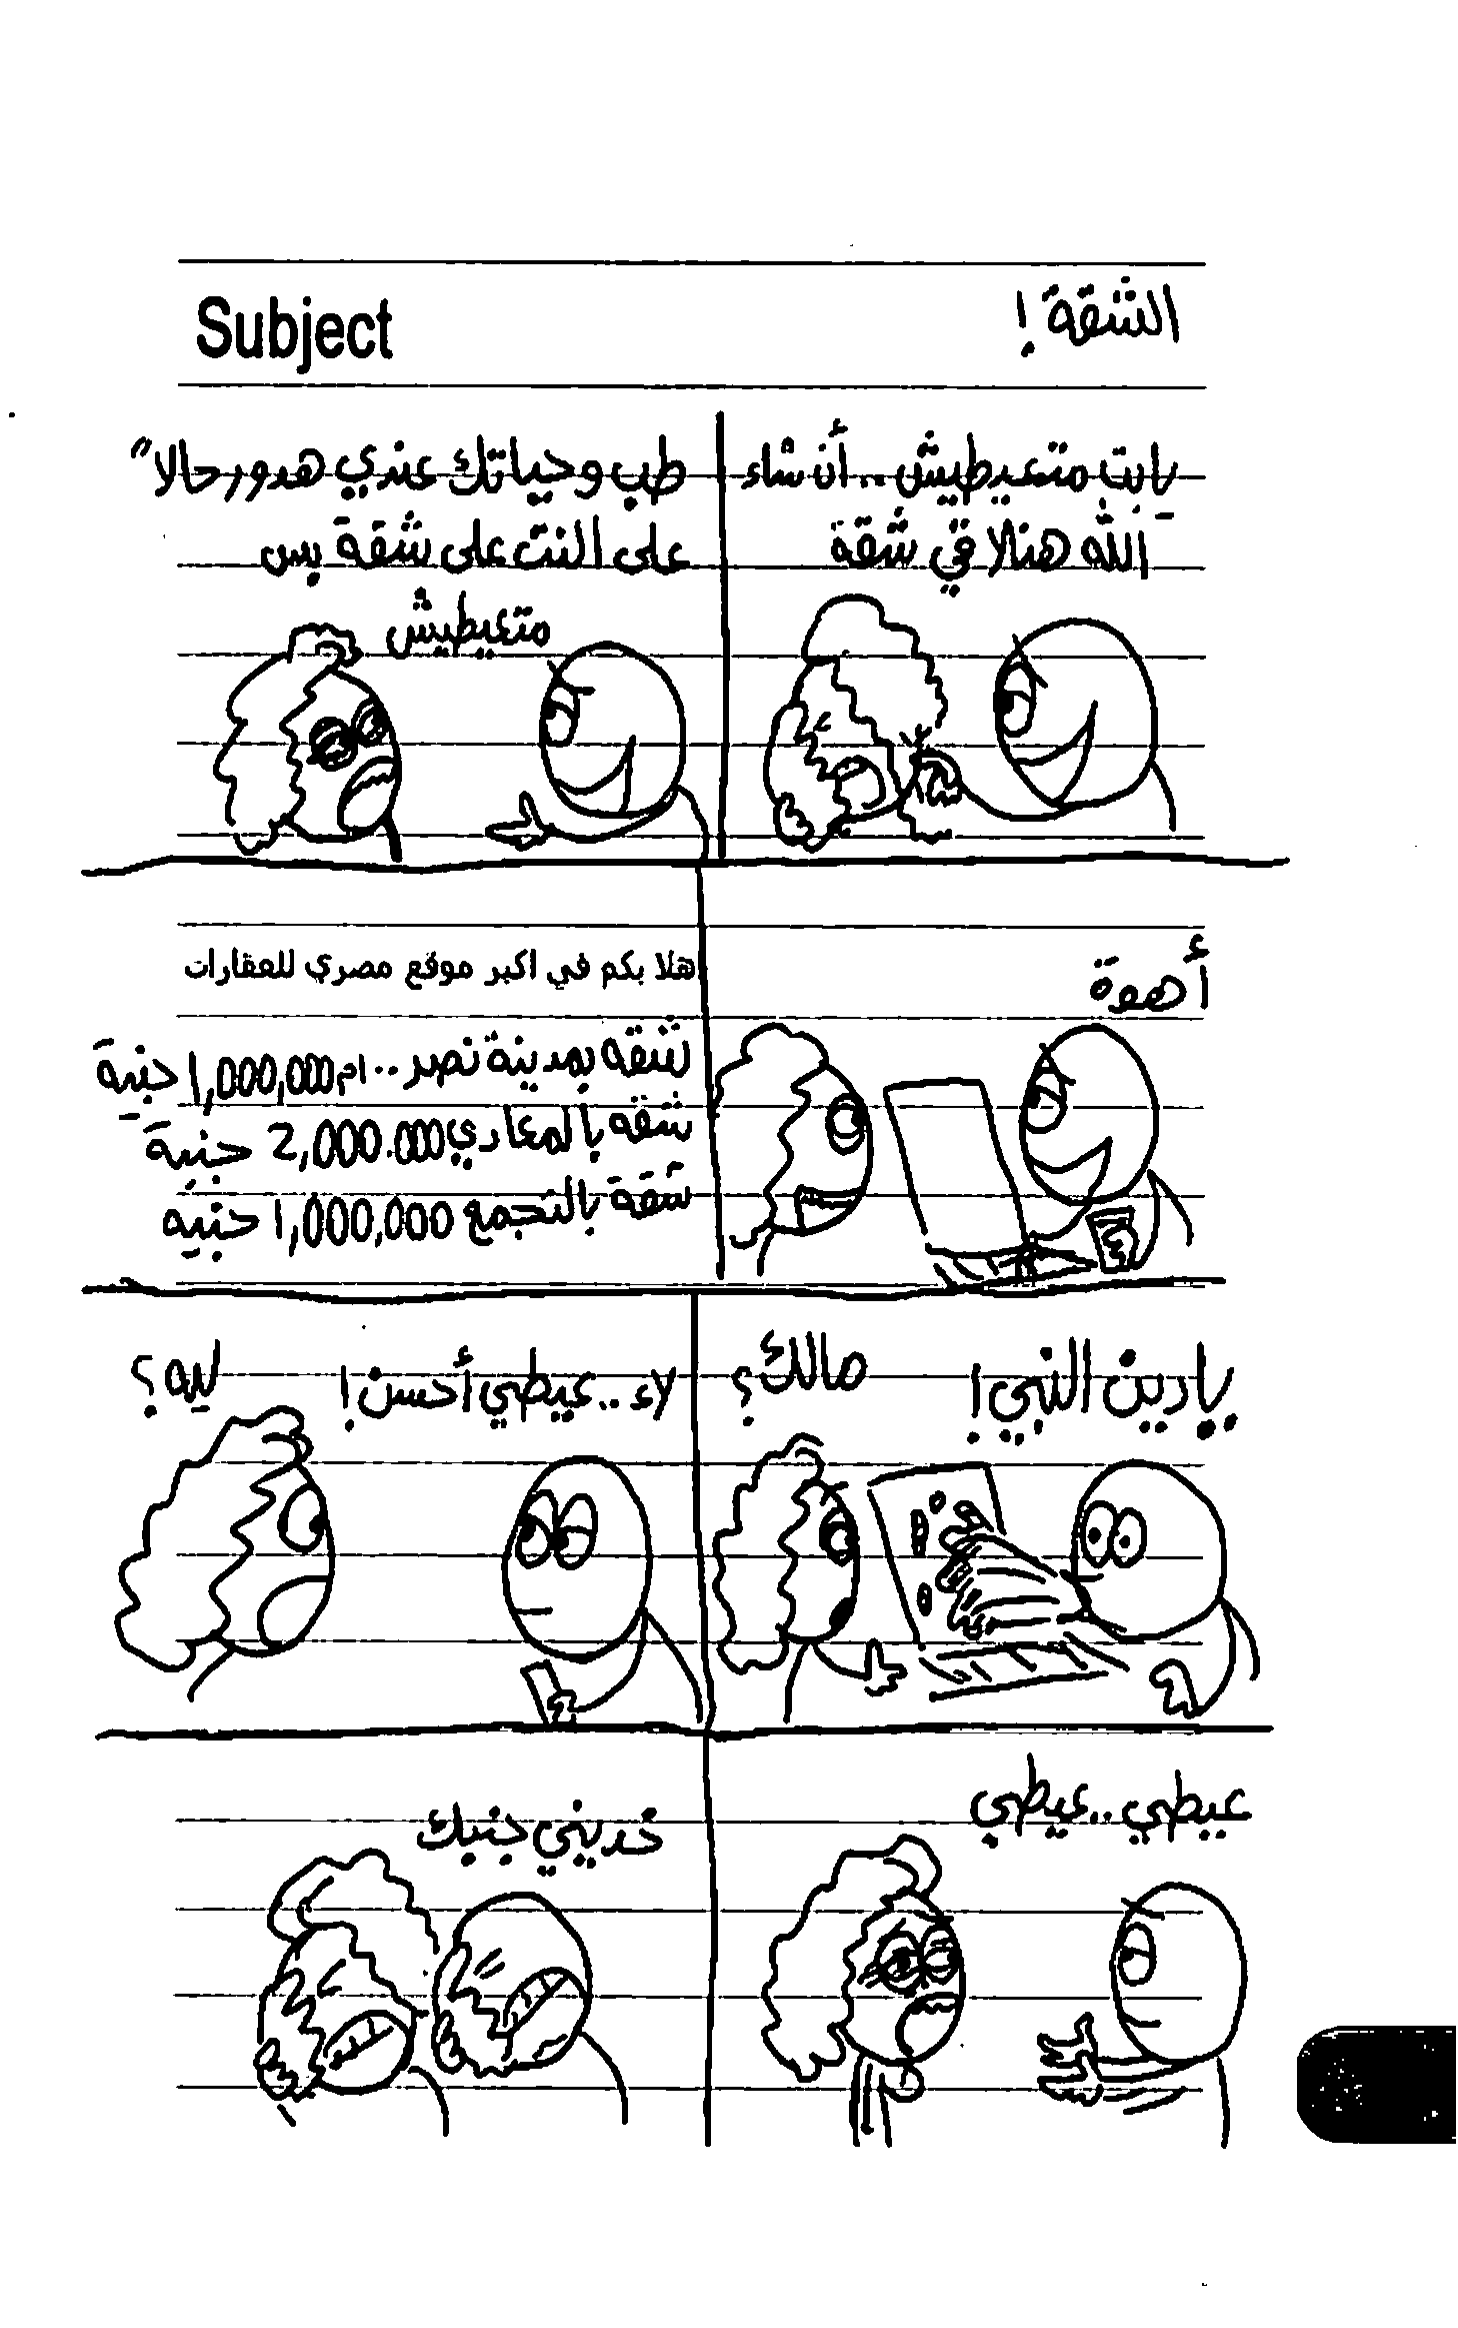 Subject
الشقة !
يا بت متعيطيش .. أن شاء
الله هنلاقي شقة
طب وحياتك عندي هدور حالاً
على النت على شقة بس
متعيطيش
أهوة
هلا بكم في اكبر موقع مصري للعقارات
شقه بمدينة نصر .. ام 1,000,000 جنية
شقه بالمعادي 2,000.000 جنية
شقة بالتجمع 1,000,000 جنيه
يادين النبي !
مالك ؟
لاء .. عيطي أحسن !
ليه ؟
عيطي .. عيطي
خديني جنبك